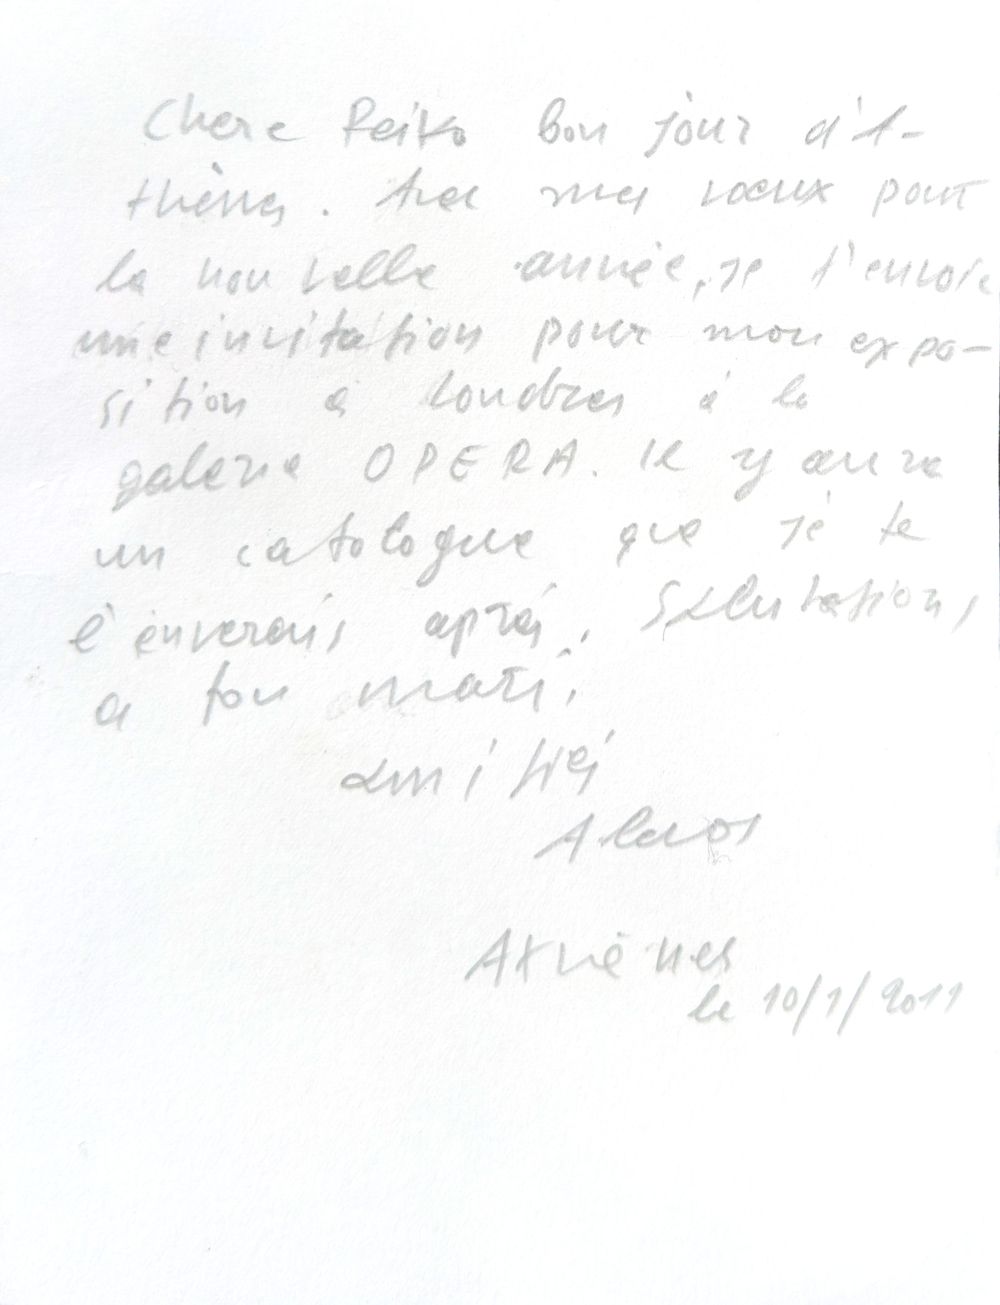 Chere Reiko bon jour d'A-
thènes. Avec mes vœux pour
la nouvelle année, je t'envoie
une invitation pour mon expo-
sition a Londres à la
galerie OPERA. Il y aura
un catalogue que je te
l'enverais après. Salutations
a ton mari.
amitiés
Athènes
le 10/1/2011